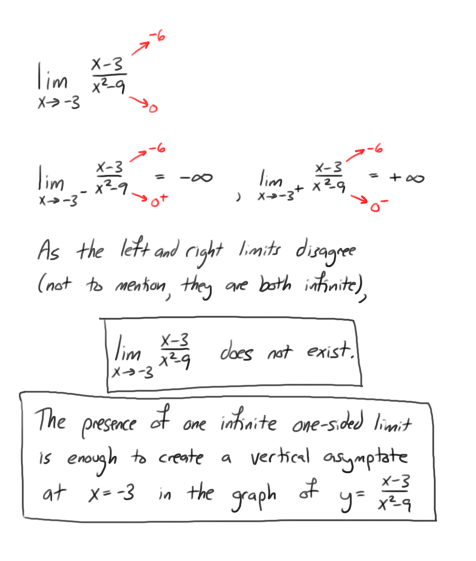 lim x→-3 (x-3)/(x²-9) →-6 →0
lim x→-3⁻ (x-3)/(x²-9) →-6 →0⁺ = -∞ , lim x→-3⁺ (x-3)/(x²-9) →-6 →0⁻ = +∞
As the left and right limits disagree
(not to mention, they are both infinite),
lim x→-3 (x-3)/(x²-9) does not exist.
The presence of one infinite one-sided limit
is enough to create a vertical asymptote
at x=-3 in the graph of y= (x-3)/(x²-9)